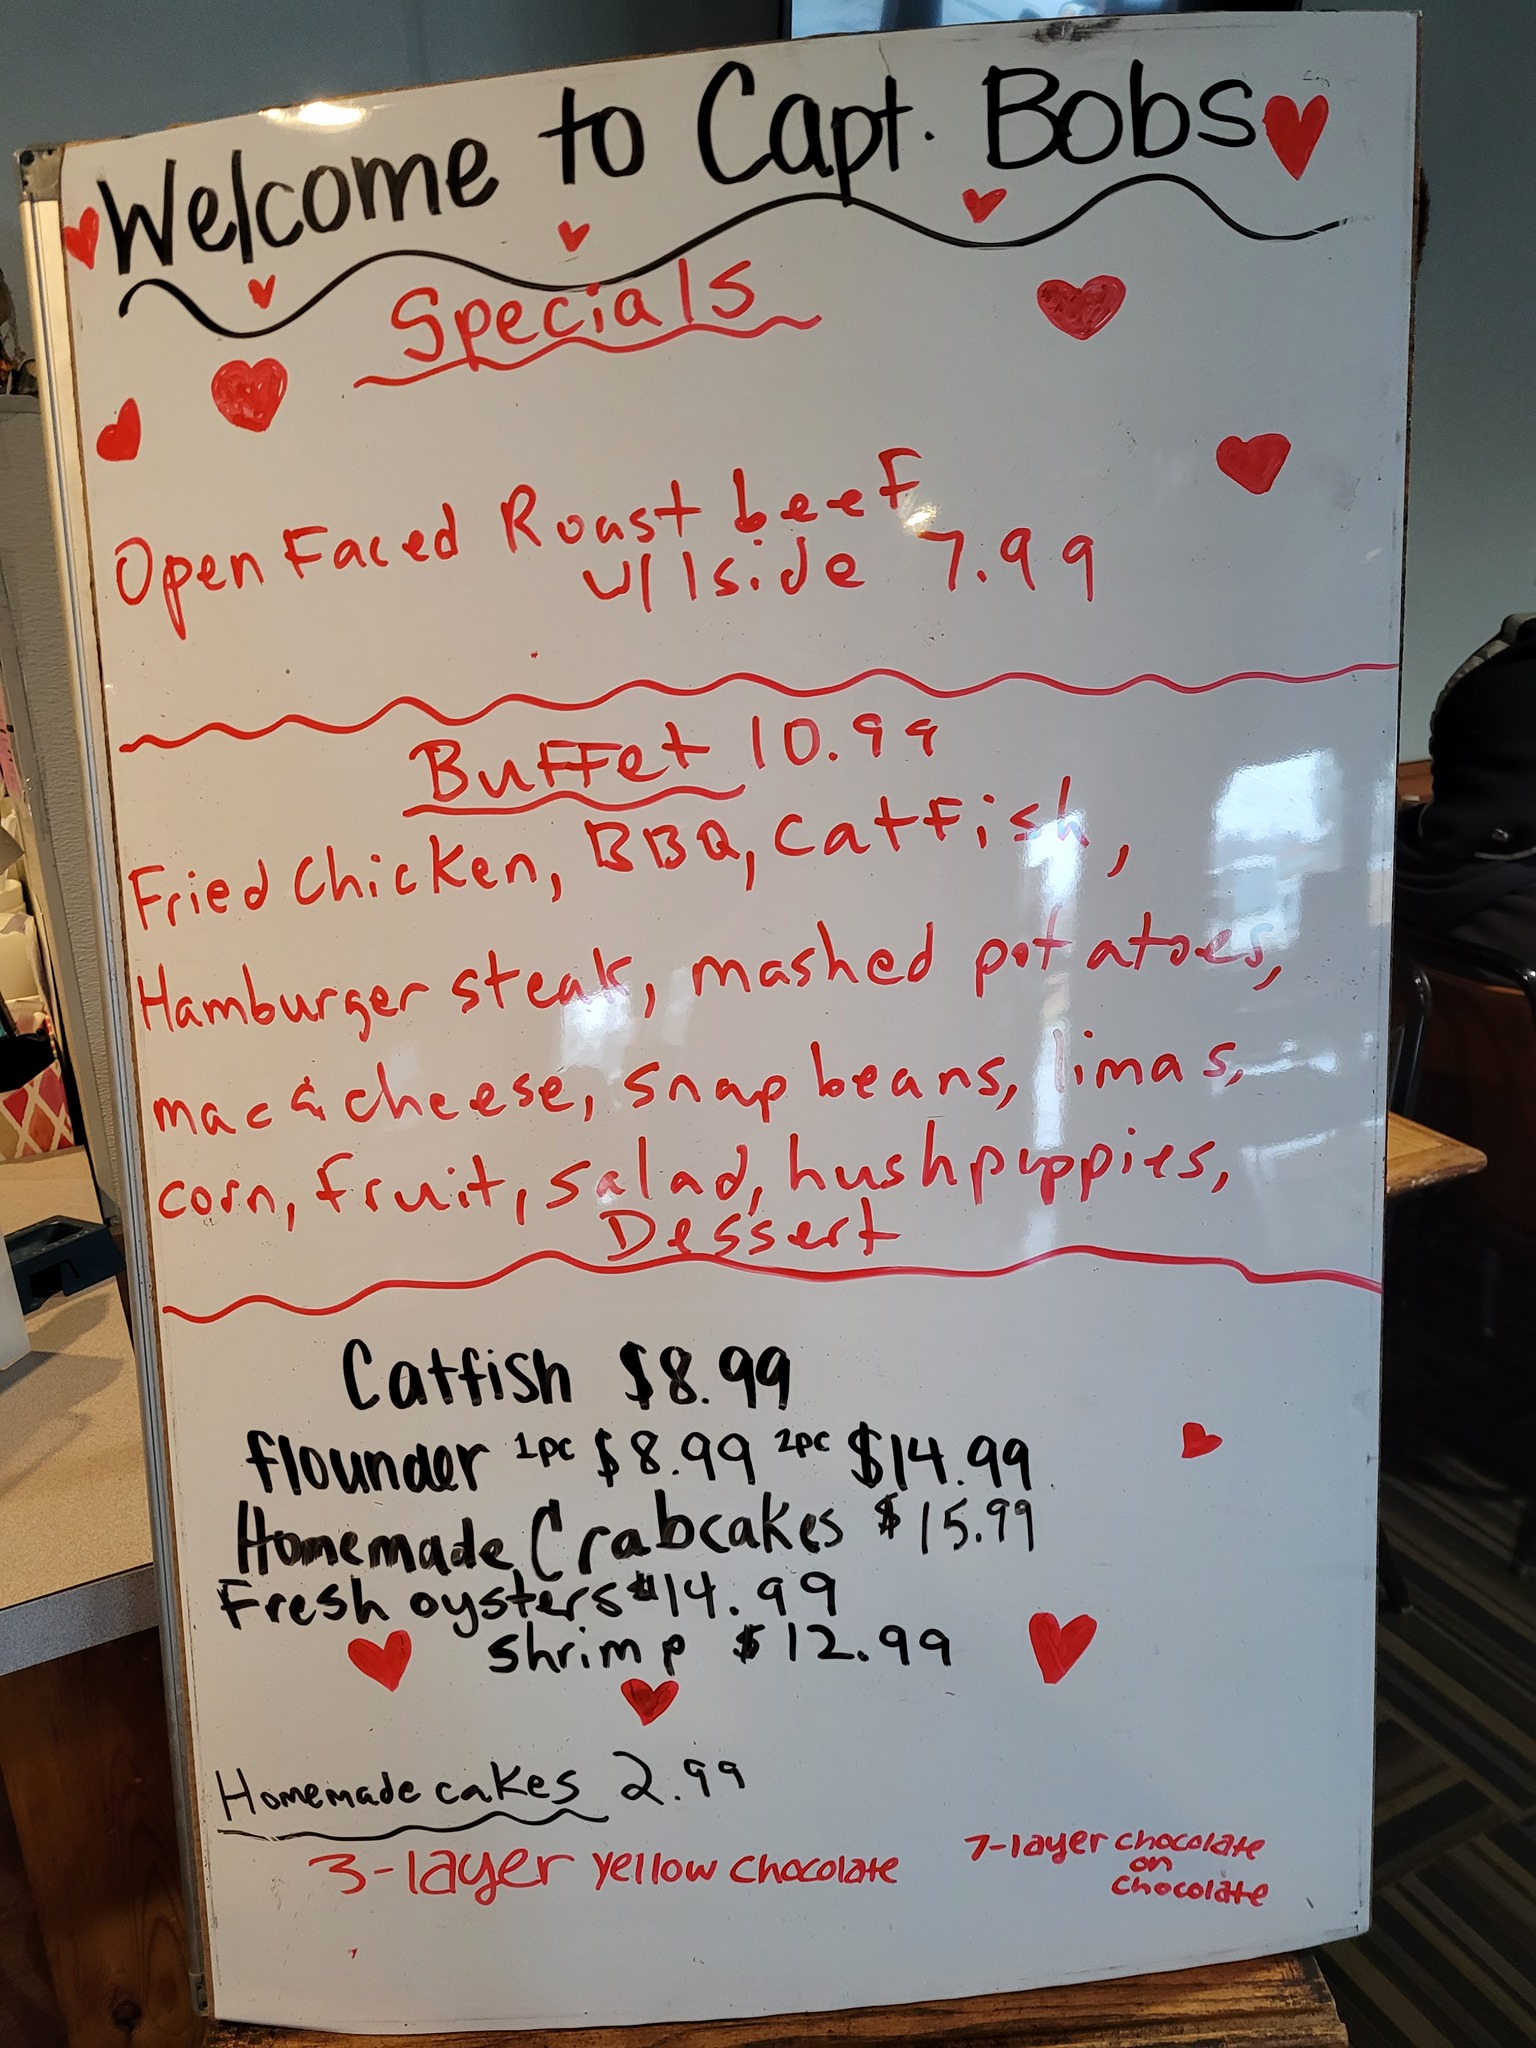 Welcome to Capt. Bobs
Specials
Open Faced Roast beef
w/ 1 side 7.99
Buffet 10.99
Fried Chicken, BBQ, Catfish,
Hamburger steak, mashed potatoes,
mac & cheese, snap beans, limas,
corn, fruit, salad, hushpuppies,
Dessert
Catfish $8.99
flounder 1pc $8.99 2pc $14.99
Homemade Crabcakes $15.99
Fresh oysters $14.99
shrimp $12.99
Homemade cakes 2.99
3-layer yellow chocolate
7-layer chocolate
on
chocolate